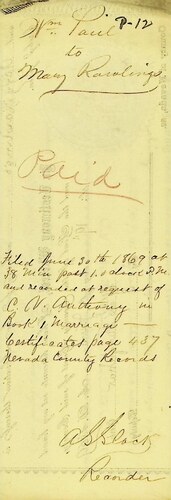 Wm Paul P-12
to
Mary Rawlings
Paid
Filed June 30th 1869 at
38 Min past 1. o clock P.M
and recorded at request of
C. N. Anthony in
Book 1 Marriage
Certificates page 437
Nevada County Records
Recorder